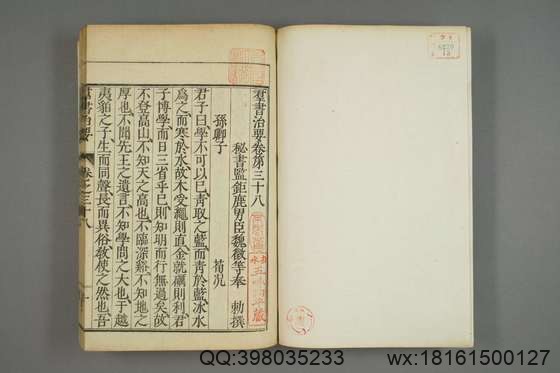 羣書治要卷第三十八
秘書監鉅鹿男臣魏徵等奉 勅撰
孫卿子 荀況
君子曰學不可以已青取之藍而青於藍冰水
爲之而寒於水故木受繩則直金就礪則利君
子博學而日三省乎己則知明而行無過矣故
不登高山不知天之高也不臨深谿不知地之
厚也不聞先王之遺言不知學問之大也于越
夷貊之子生而同聲長而異俗敎使之然也吾
羣書治要 卷之三十八 一
QQ:398035233
wx:18161500127